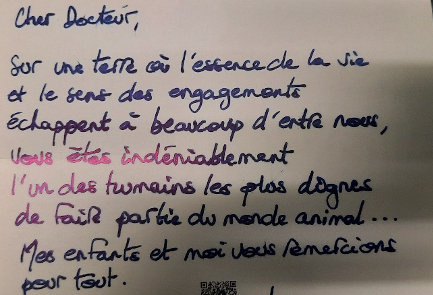 Cher Docteur,
Sur une terre où l'essence de la vie
et le sens des engagements
échappent à beaucoup d'entre nous,
vous êtes indéniablement
l'un des humains les plus dignes
de faire partie du monde animal...
Mes enfants et moi vous remercions
pour tout.